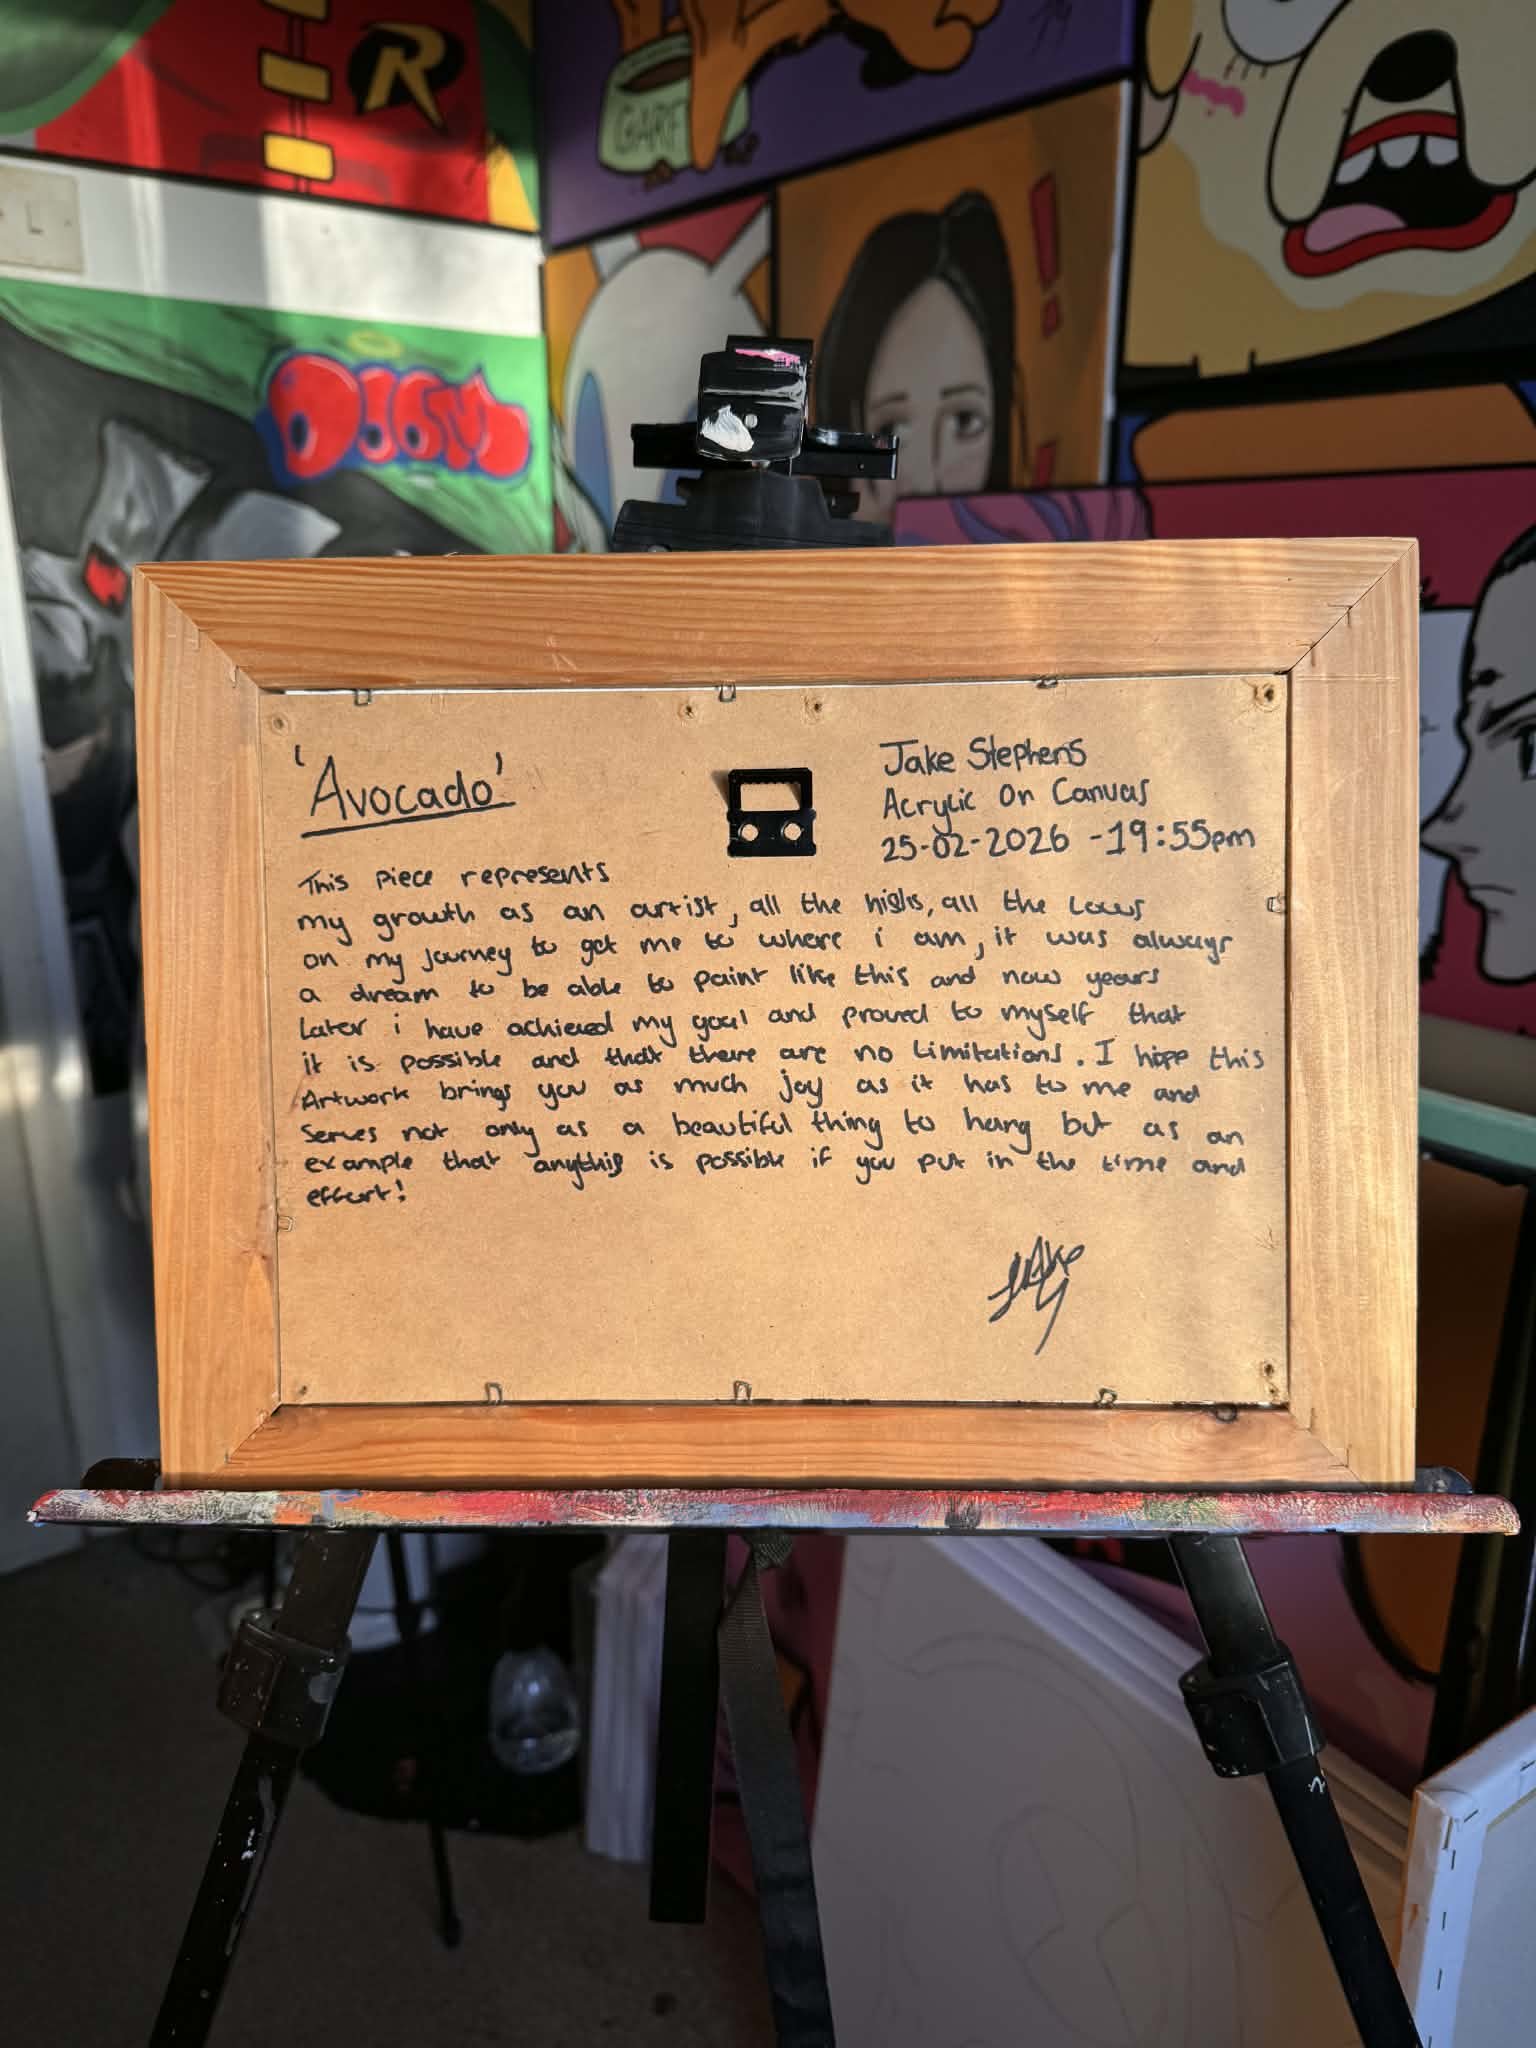 R
GARF
L
'Avocado'
Jake Stephens
Acrylic On Canvas
25-02-2026 -19:55pm
This piece represents
my growth as an artist, all the highs, all the Lows
on my journey to get me to where i am, it was always
a dream to be able to paint like this and now years
Later i have achieved my goal and proved to myself that
it is possible and that there are no Limitations. I hope this
Artwork brings you as much joy as it has to me and
Serves not only as a beautiful thing to hang but as an
example that anything is possible if you put in the time and
effort!
Jake